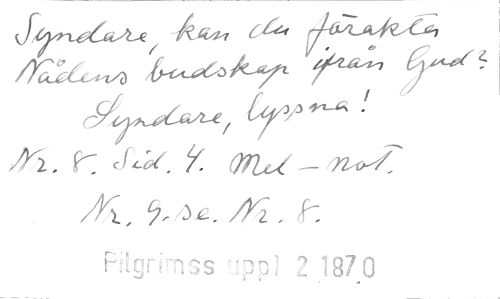 Syndare, kan du förakta
Nådens budskap ifrån Gud?
Syndare, lyssna!
Nr. 8. Sid. 4. Mel-not.
Nr. 9. se. Nr. 8.
Pilgrimss uppl 2 1870